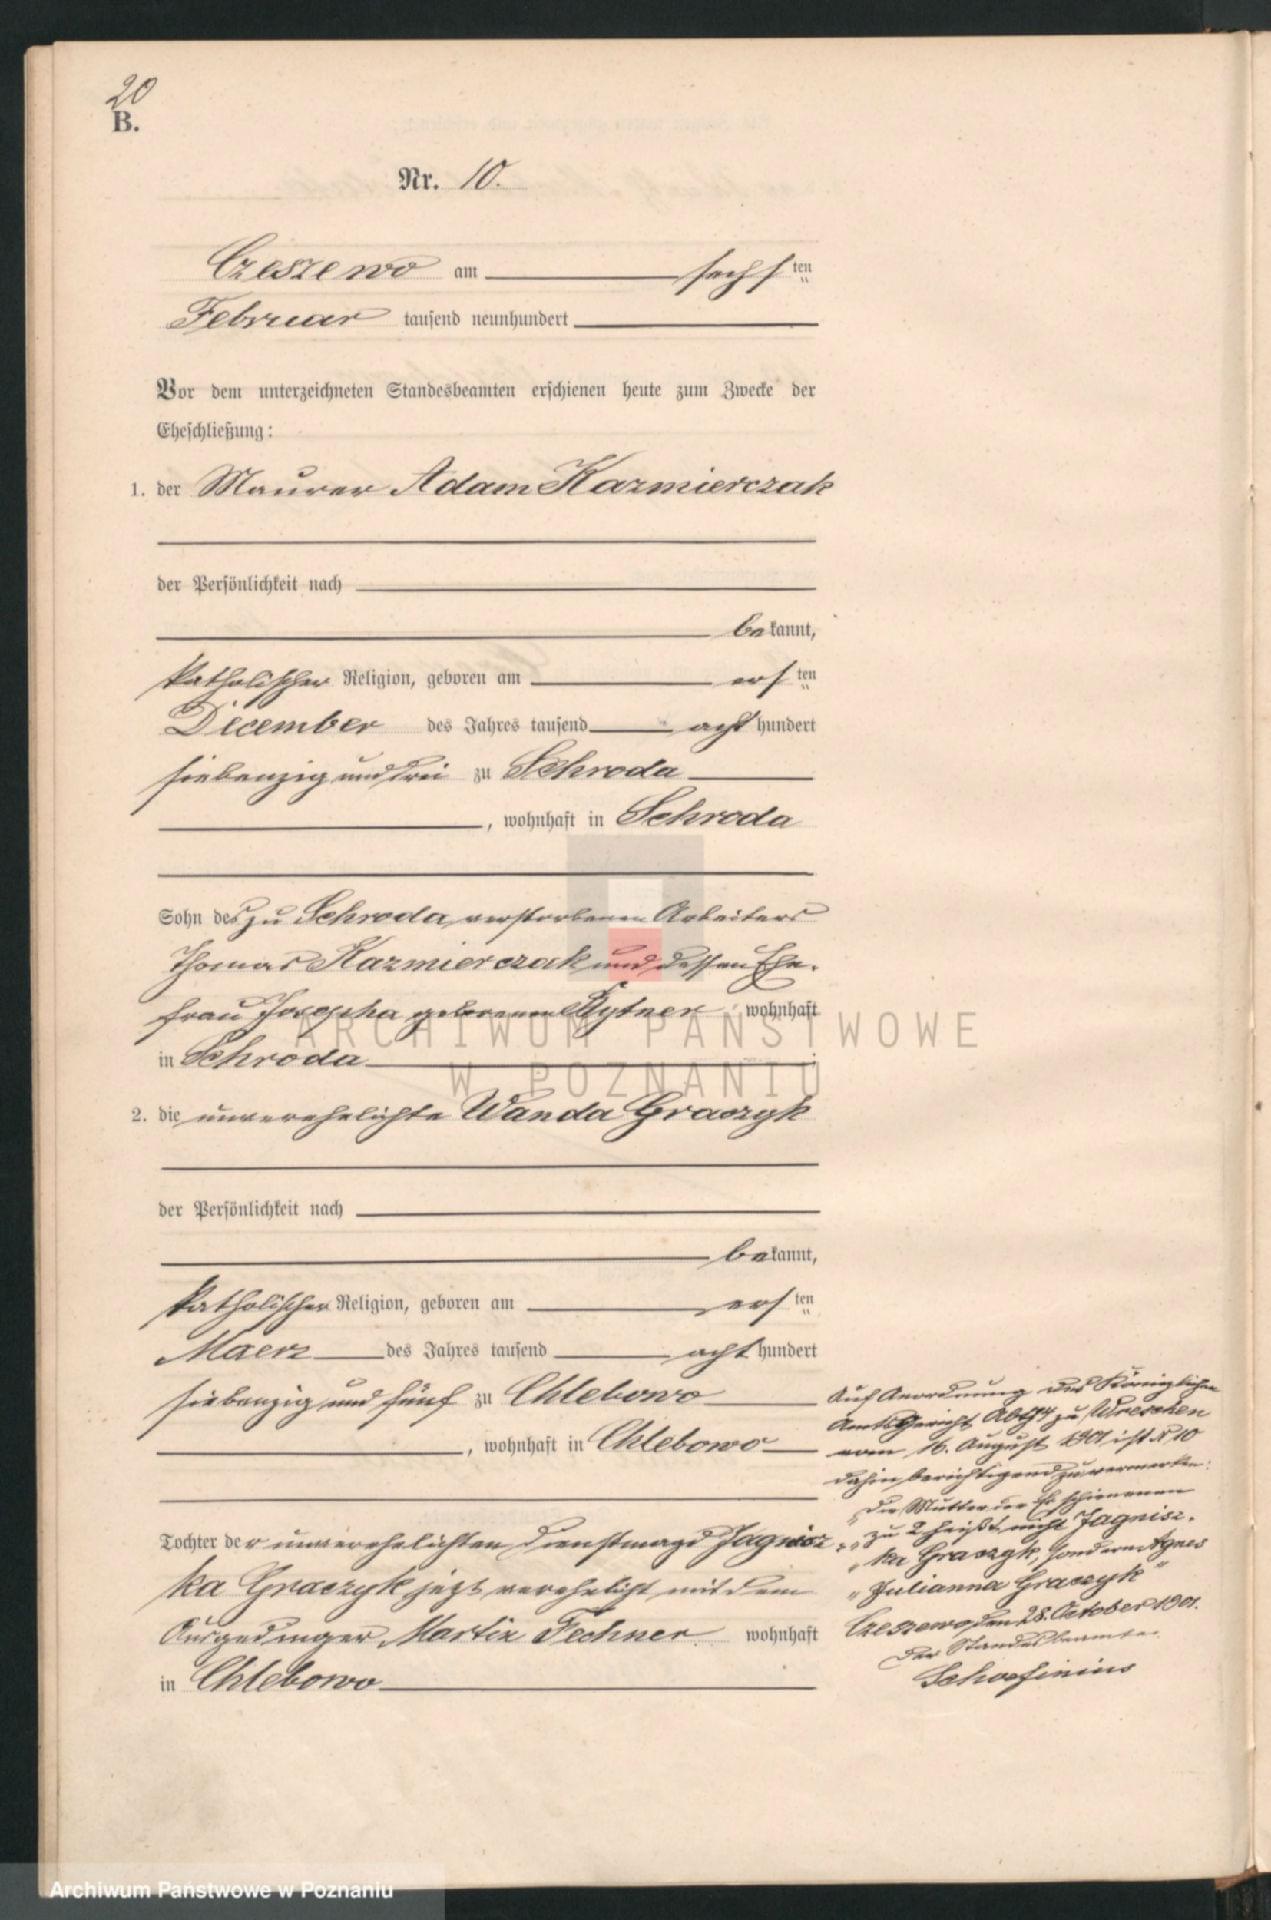 20
B.
Nr. 10.
Czeszewo am sechsten
Februar tausend neunhundert
Vor dem unterzeichneten Standesbeamten erschienen heute zum Zwecke der
Eheschließung:
1. der Maurer Adam Kazmierczak
der Persönlichkeit nach
bekannt,
katholischer Religion, geboren am ersten
December des Jahres tausend acht hundert
siebenzig und drei zu Schroda
, wohnhaft in Schroda
Sohn des zu Schroda verstorbenen Arbeiters
Thomas Kazmierczak und dessen Ehe-
frau Josepha geborenen Rytner wohnhaft
in Schroda
2. die unverehelichte Wanda Graczyk
der Persönlichkeit nach
bekannt,
katholischer Religion, geboren am ersten
Maerz des Jahres tausend acht hundert
siebenzig und fünf zu Chlebowo
, wohnhaft in Chlebowo
Tochter der unverehelichten Dienstmagd Jagnisz
ka Graczyk jezt verehelicht mit dem
Ausgedinger Martin Fechner wohnhaft
in Chlebowo
Auf Anordnung des Königlichen
Amtsgericht zu Wreschen
vom 16. August 1901 ist N 10
dahin berichtigend zu vermerken:
"Die Mutter der Erschienenen
"zu 2 heißt nicht Jagnisz-
"ka Graczyk, sondern Agnes
"Julianna Graczyk"
Czeszewo, den 28. October 1901.
Der Standesbeamte.
ARCHIWUM PAŃSTWOWE
W POZNANIU
Archiwum Państwowe w Poznaniu